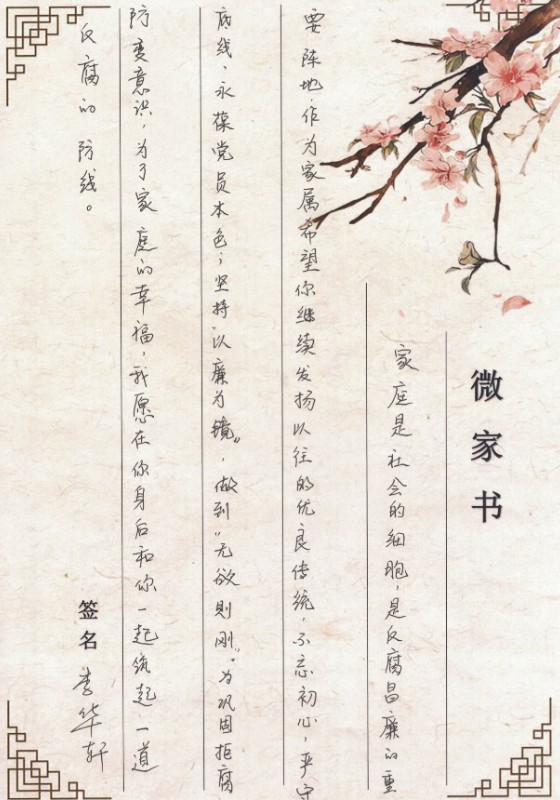 微家书
家庭是社会的细胞，是反腐昌廉的重
要阵地，作为家属希望你继续发扬以往的优良传统，不忘初心，严守
底线、永葆党员本色，坚持“以廉为镜”，做到“无欲则刚”。为巩固拒腐
防变意识，为了家庭的幸福，我愿在你身后和你一起筑起一道
反腐的防线。
签名 李华轩